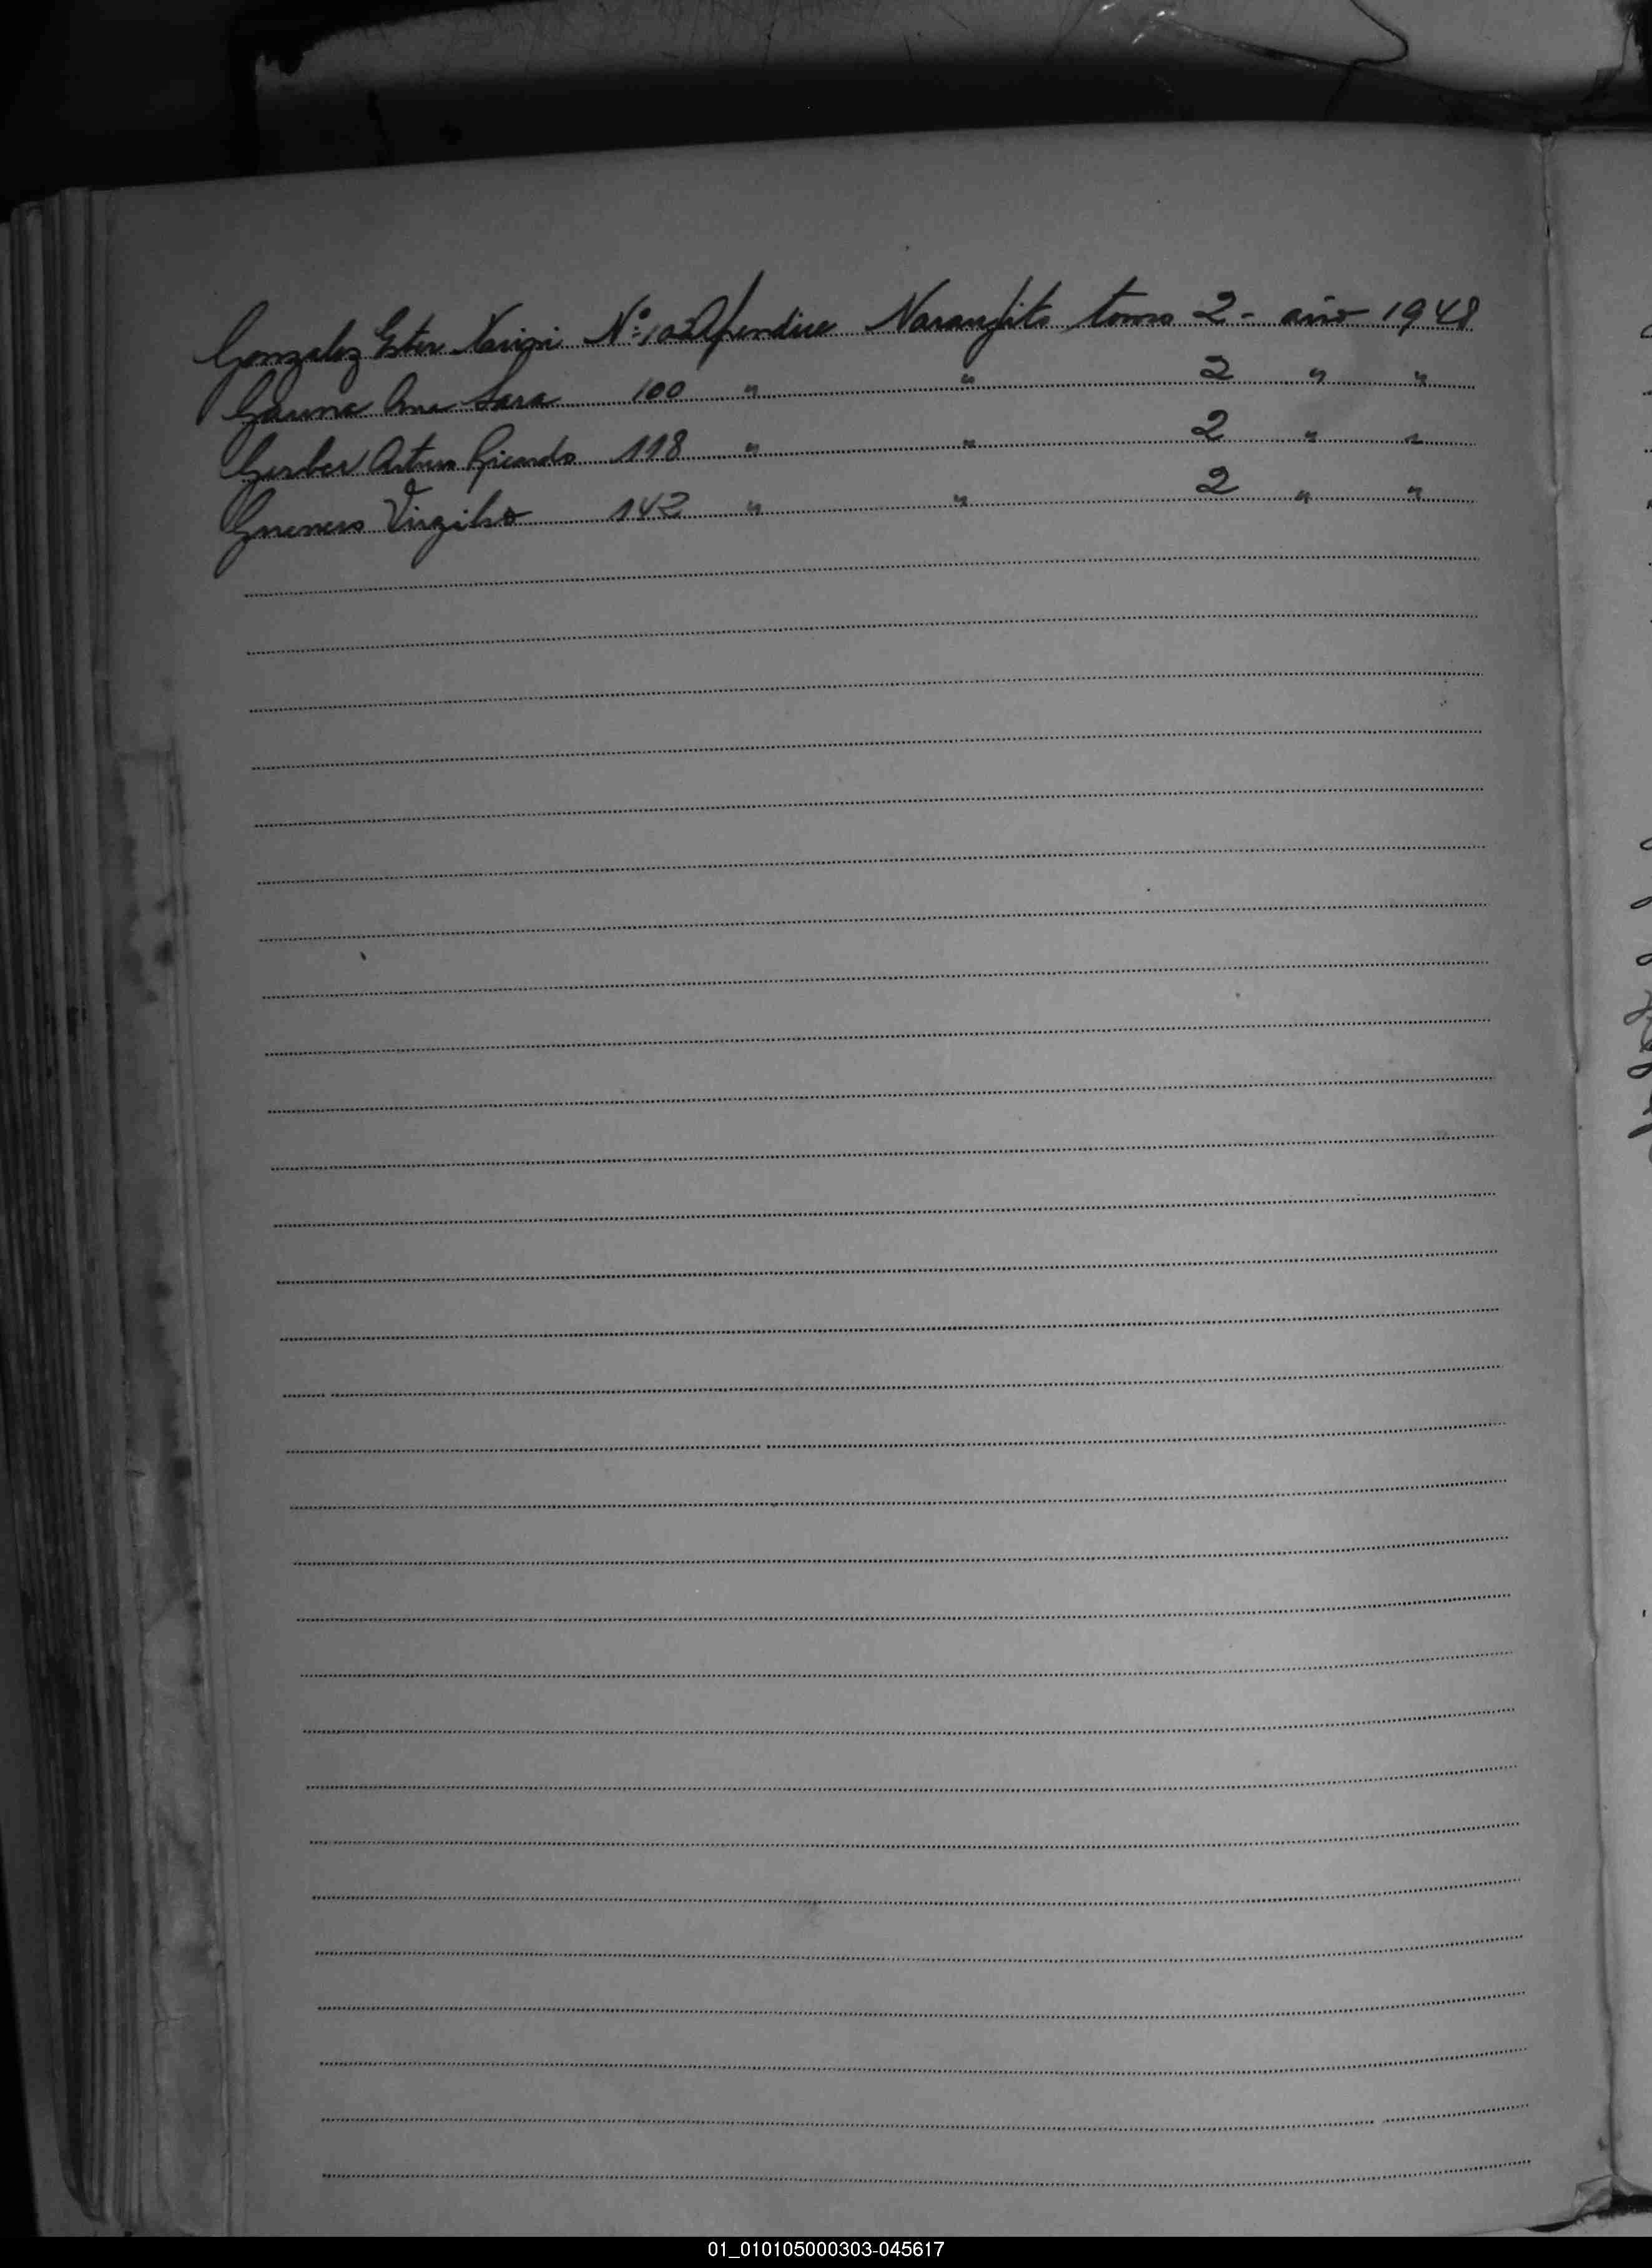 Gonzalez Ester Nº: 102 Apendice Naranjito tomo 2 - año 1948
Gauna Ana Sara 100 " " 2 " "
Gerber Arturo Ricardo 118 " " 2 " "
Virgilio 142 " " 2 " "
01_010105000303-045617